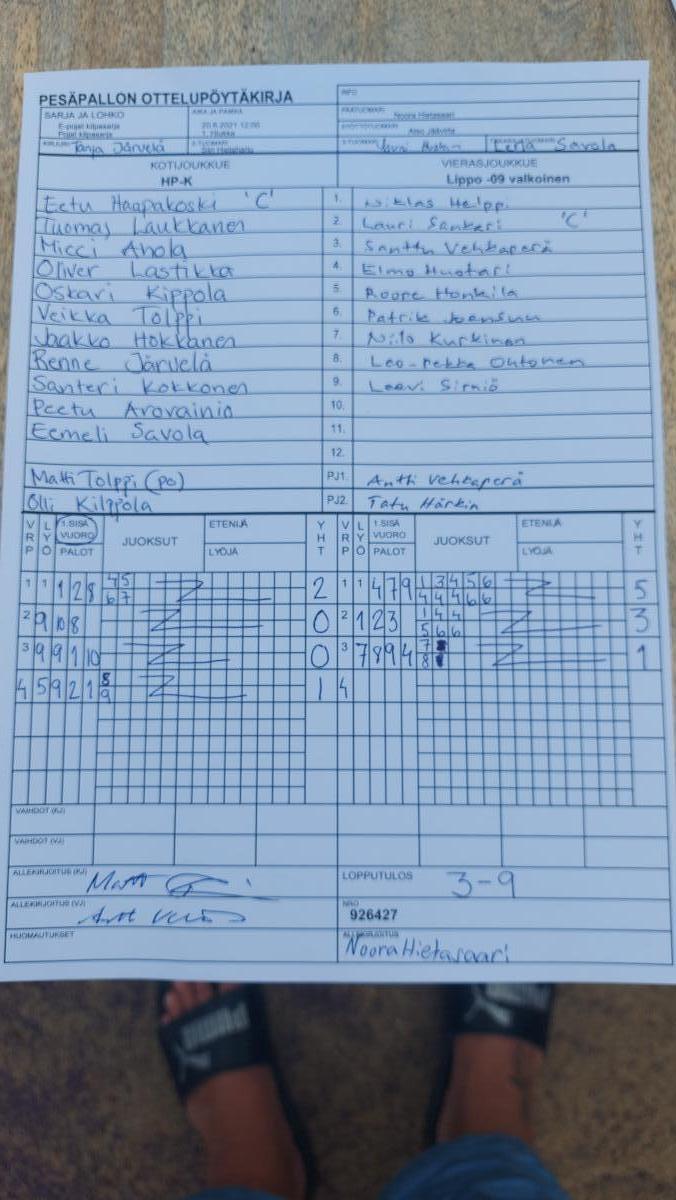 PESÄPALLON OTTELUPÖYTÄKIRJA
INFO
SARJA JA LOHKO
AIKA JA PAIKKA
E-pojat kilpasarja
Pojat kilpasarja
20.6.2021 12:00
Noora Hietasaari
Tanja Järvelä
Eerja Savola
KOTIJOUKKUE
VIERASJOUKKUE
HP-K
Lippo -09 valkoinen
Eetu Haapakoski 'C' 1. Niklas Helppi
Tuomas Laukkanen 2. Lauri Sankari 'C'
Micci Ahola 3. Santtu Vehkaperä
Oliver Lastikka 4. Elmo Huotari
Oskari Kippola 5. Roope Honkila
Veikka Tolppi 6. Patrik Joensuu
Jaakko Hokkanen 7. Niilo Kurkinen
Renne Järvelä 8. Leo-Pekka Ohtonen
Santeri Kokkonen 9. Leevi Sirniö
Peetu Arovainio 10.
Eemeli Savola 11.
12.
Matti Tolppi (po) PJ1. Antti Vehkaperä
Olli Kilppola PJ2. Tatu Härkin
VRP LYÖ 1.SISÄ VUORO PALOT JUOKSUT ETENIJÄ LYÖJÄ YHT VRP LYÖ 1.SISÄ VUORO PALOT JUOKSUT ETENIJÄ LYÖJÄ YHT
1 1 1 2 8 4 5 2 1 1 4 7 9 1 3 4 5 6 5
6 7 4 4 4 6 6
2 9 10 8 0 2 1 2 3 1 4 4 3
5 6 6
3 9 9 1 10 0 3 7 8 9 4 7 1
8
4 5 9 2 1 8 1 4
9
VAIHDOT (KJ)
VAIHDOT (VJ)
ALLEKIRJOITUS (KJ)
LOPPUTULOS 3-9
ALLEKIRJOITUS (VJ)
NRO
926427
HUOMAUTUKSET
ALLEKIRJOITUS
Noora Hietasaari
PUMA